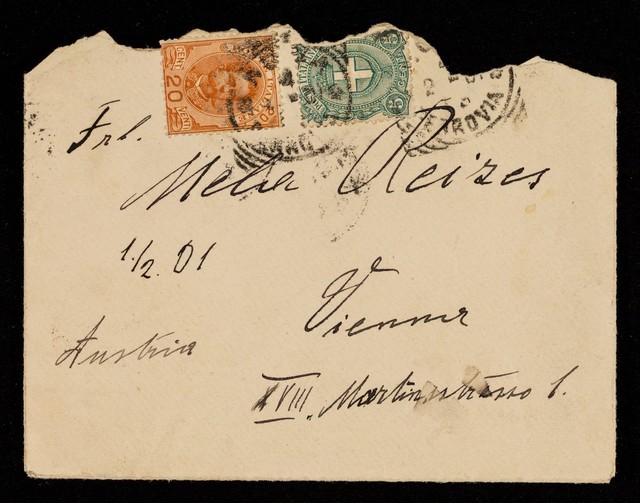 CENT 20 CENT 20
5 CEN 5
ROVIA
Frl.
Mela Reizes
1./2. 01
Vienna
Austria
XVIII., Martinstrasse 6.